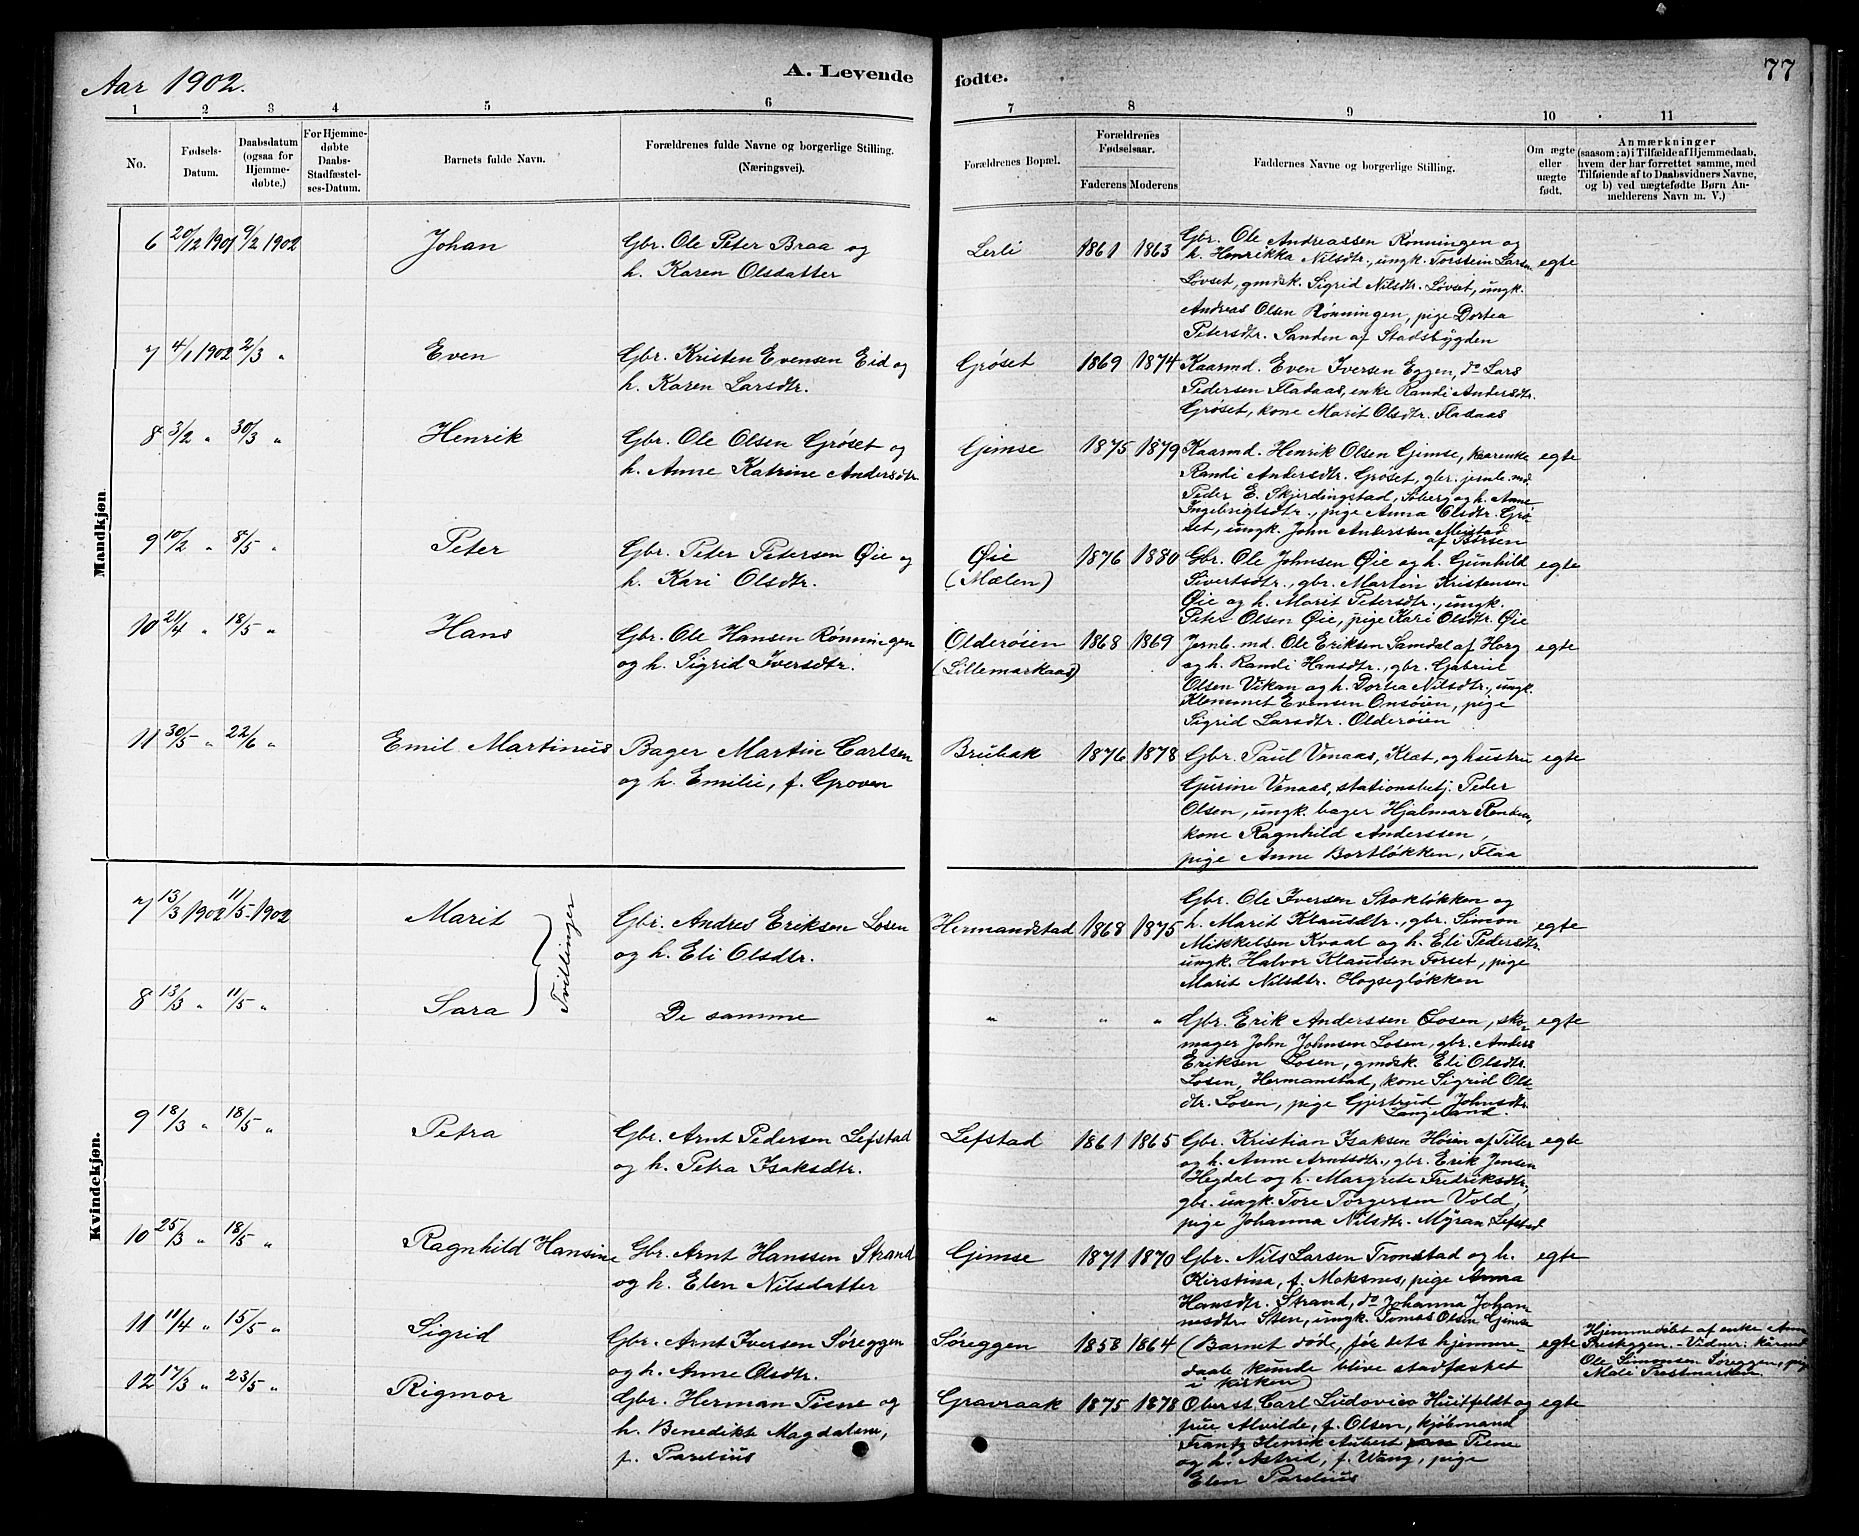 Aar 1902.
A. Levende
fødte.
77
1 2 3 4 5 6 7 8 9 10 11
No.
Fødsels-
Datum.
Daabsdatum
(ogsaa for
Hjemme-
døbte.)
For Hjemme-
døbte
Daabs-
Stadfæstel-
ses-Datum.
Barnets fulde Navn.
Forældrenes fulde Navne og borgerlige Stilling.
(Næringsvei).
Forældrenes Bopæl.
Forældrenes
Fødselsaar.
Faderens Moderens
Faddernes Navne og borgerlige Stilling.
Om ægte
eller
uægte
født.
Anmærkninger
(saasom: a) i Tilfælde af Hjemmedaab,
hvem der har forrettet samme, med
Tilføiende af to Daabsvidners Navne,
og b) ved uægtefødte Børn An-
melderens Navn m. V.)
Mandkjøn
6 20/12 1901 9/2 1902 Johan
Gbr. Ole Peter Braa og
h. Karen Olsdatter
Lerli 1861 1863
Gbr. Ole Andreassen Rønningen og
h. Henrikka Nilsdtr., ungk. Torstein Larsen
Løvset, gmdsk. Sigrid Nilsdtr. Løvset, ungk.
Andreas Olsen Rønningen, pige Dortea
Petersdtr. Sanden af Stadsbygden
egte
7 4/1 1902 2/3 " Even
Gbr. Kristen Evensen Eid og
h. Karen Larsdtr.
Grøset 1869 1874
Kaarmd. Even Iversen Eggen, do Lars
Pedersen Fladaas, enke Randi Andersdtr.
Grøset, kone Marit Olsdtr. Fladaas
8 3/2 " 30/3 " Henrik
Gbr. Ole Olsen Grøset og
h. Anne Katrine Andersdtr.
Gimse 1875 1879
Kaarmd. Henrik Olsen Gimse, kaarenke
Randi Andersdtr. Grøset, gbr. jernb. md.
Peder E. Skjerdingstad, Søberg og h. Anne
Ingebrigtsdtr., pige Anna Olsdtr. Grø-
set, ungk. John Anderssen Meistad
af Børsen
egte
9 10/2 " 8/5 " Peter
Gbr. Peter Petersen Øie og
h. Kari Olsdtr.
Øie
(Mælen)
1876 1880
Gbr. Ole Johnsen Øie og h. Gunhild
Sivertsdtr., gbr. Martin Kristensen
Øie og h. Marit Petersdtr., ungk.
Peter Olsen Øie, pige Kari Olsdtr. Øie
egte
10 21/4 " 18/5 " Hans
Gbr. Ole Hansen Rønningen
og h. Sigrid Iversdtr.
Olderøien
(Lillemarkaas)
1868 1869
Jernb. md. Ole Eriksen Samdal af Horg
og h. Randi Hansdtr., gbr. Gabriel
Olsen Vikan og h. Dortea Nilsdtr., ungk.
Klemmet Evensen Onsøien, pige
Sigrid Larsdtr. Olderøien
egte
11 30/5 " 22/6 " Emil Martinus
Bager Martin Carlsen
og h. Emilie, f. Groven
Brubak 1876 1878
Gbr. Paul Venaas, Klæt, og hustru
Gurine Venaas, stationsbetj. Peder
Olsen, ungk. bager Hjalmar
kone Ragnhild Anderssen,
pige Anne Bortløkken, Flaa
egte
Kvindekjøn.
7 13/3 1902 11/5 1902 Marit
Tvillinger
Gbr. Andres Eriksen Losen
og h. Eli Olsdtr.
Hermandstad 1868 1875
Gbr. Ole Iversen Stokløkken og
h. Marit Klausdtr., gbr. Simon
Mikkelsen Kvaal og h. Eli Pedersdtr.
ungk. Halvor Klausen Forset, pige
Marit Nilsdtr. Hogsegløkken
egte
8 13/3 " 11/5 " Sara
De samme
" " "
Gbr. Erik Anderssen Losen, sko-
mager John Johnsen Losen, gbr. Anders
Eriksen Losen, gmdsk. Eli Olsdtr.
Losen, Hermanstad, kone Sigrid Ols-
dtr. Losen, pige Gjertrud Johnsdtr.
Langeland.
egte
9 18/3 " 18/5 " Petra
Gbr. Arnt Pedersen Lefstad
og h. Petra Isaksdtr.
Lefstad 1861 1865
Gbr. Kristian Isaksen Høien af Tiller
og h. Anne Arntsdtr., gbr. Erik Jensen
Hegdal og h. Margrete Fredriksdtr.,
gbr. ungk. Tore Torgersen Vold,
pige Johanna Nilsdtr. Myran Lefstad
egte
10 25/3 " 18/5 " Ragnhild Hansine
Gbr. Arnt Hanssen Strand
og h. Elen Nilsdatter
Gimse 1871 1870
Gbr. Nils Larsen Tronstad og h.
Kirstina, f. Moksnes, pige Anna
Hansdtr. Strand, do Johanna Johan-
nesdtr. Sten, ungk. Tomas Olsen Gimse
egte
11 11/4 " 15/5 " Sigrid
Gbr. Arnt Iversen Søreggen
og h. Anne Olsdtr.
Søreggen 1858 1864
(Barnet død, før dets hjemme-
daab kunde blive stadfæstet
i kirken)
egte
Hjemmedøbt af enke Ane
Presteggen. Vidner: kaarmd.
Ole Simonsen Søreggen, pige
Mali Trøstmarken
12 17/3 " 23/5 " Rigmor
Gbr. Herman Piene og
h. Benedikte Magdalene,
f. Parelius
Gravraak 1875 1878
Oberst Carl Ludovico Huitfeldt og
frue Alvilde, f. Olsen, kjøbmand
Frantz Henrik Aubert Piene
og h. Astrid, f. Wang, pige
Elen Parelius
egte